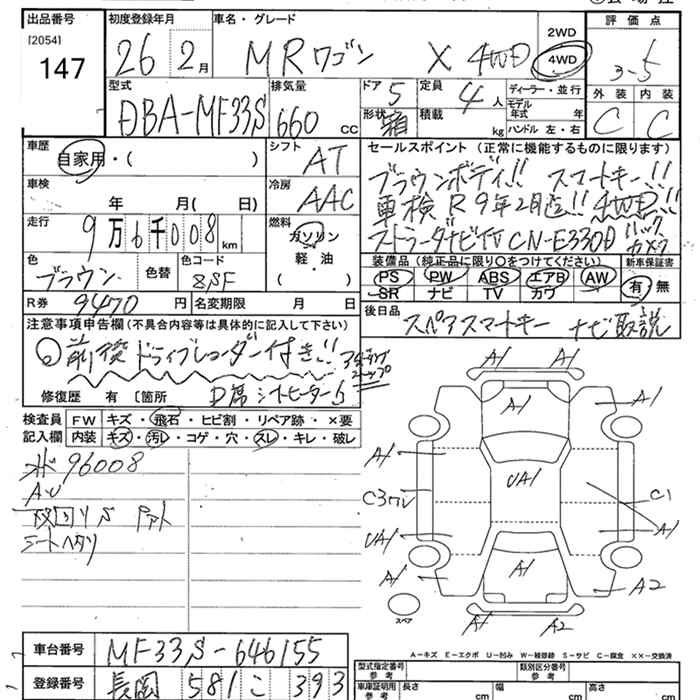 出品番号
[2054]
147
初度登録年月
26 2月
車名・グレード
MRワゴン X 4WD
2WD
4WD
評価点
3-5
外装 内装
C C
型式
DBA-MF33S
排気量
660 CC
ドア 5
形状 箱
定員 4人
積載 kg
ディーラー・並行
モデル年式 年
ハンドル 左・右
車歴
自家用・( )
シフト
AT
車検
年 月( 日)
冷房
AAC
走行
9万6千008km
燃料
ガソリン
軽・油
( )
色
ブラウン
色替
色コード
R券 9470円
名変期限 月 日
セールスポイント (正常に機能するものに限ります)
ブラウンボディ!! スマートキー!!
車検R9年2月迄!! 4WD!!
ストラーダナビTV CN-E330D バックカメラ
装備品(純正品に限り○をつけてください)
新車保証書
PS PW ABS エアB AW
SR ナビ TV カワ
有 無
後日品
スペアスマートキー ナビ取説
注意事項申告欄(不具合内容等は具体的に記入して下さい)
前後ドライブレコーダー付き!!
アイドリングストップ
修復歴 有 〔箇所
D席シートヒーター
検査員 FW キズ・飛石・ヒビ割・リペア跡・×要
記入欄 内装 キズ・汚レ・コゲ・穴・スレ・キレ・破レ
96008
シートヘタリ
A1 A1
A1 A1
A1
UA1
C3ワレ C1
UA1 A1
A1 A1 A2
A1 A1
スペア
A-キズ E-エクボ U-凹み W-補修跡 S-サビ C-腐食 ××-交換済
車台番号 MF33S-646155
登録番号 長岡 581 こ 393
型式指定番号
参考
類別区分番号
参考
車庫証明用
参考
長さ cm 幅 cm 高さ cm